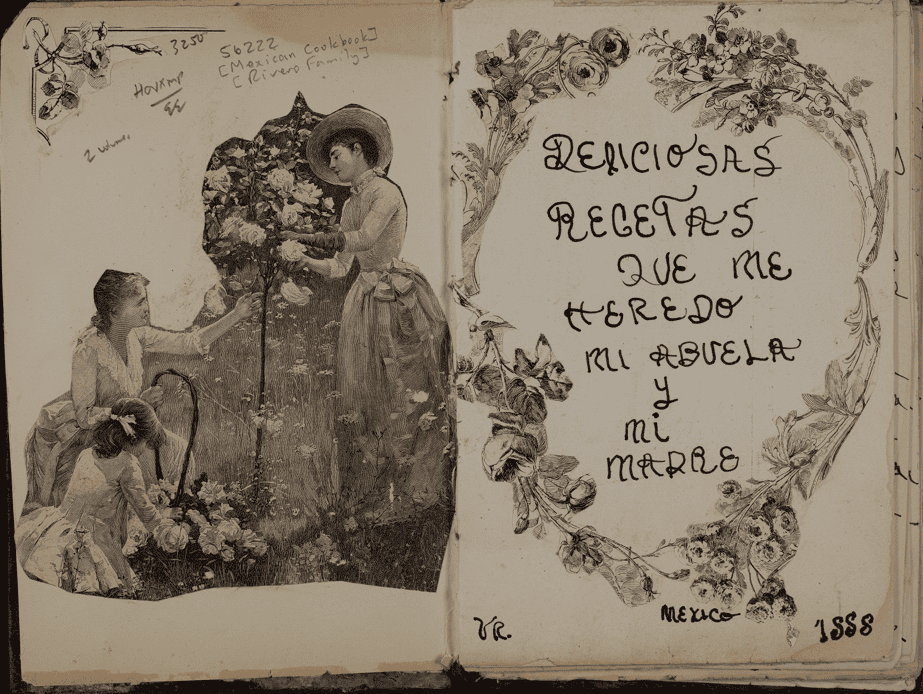 3250
56222
[Mexican Cookbook]
[Rivero Family]
DELICIOSAS
RECETAS
QUE ME
HEREDO
MI ABUELA
y
Mi
MADRE
VR.
MEXICO
1888